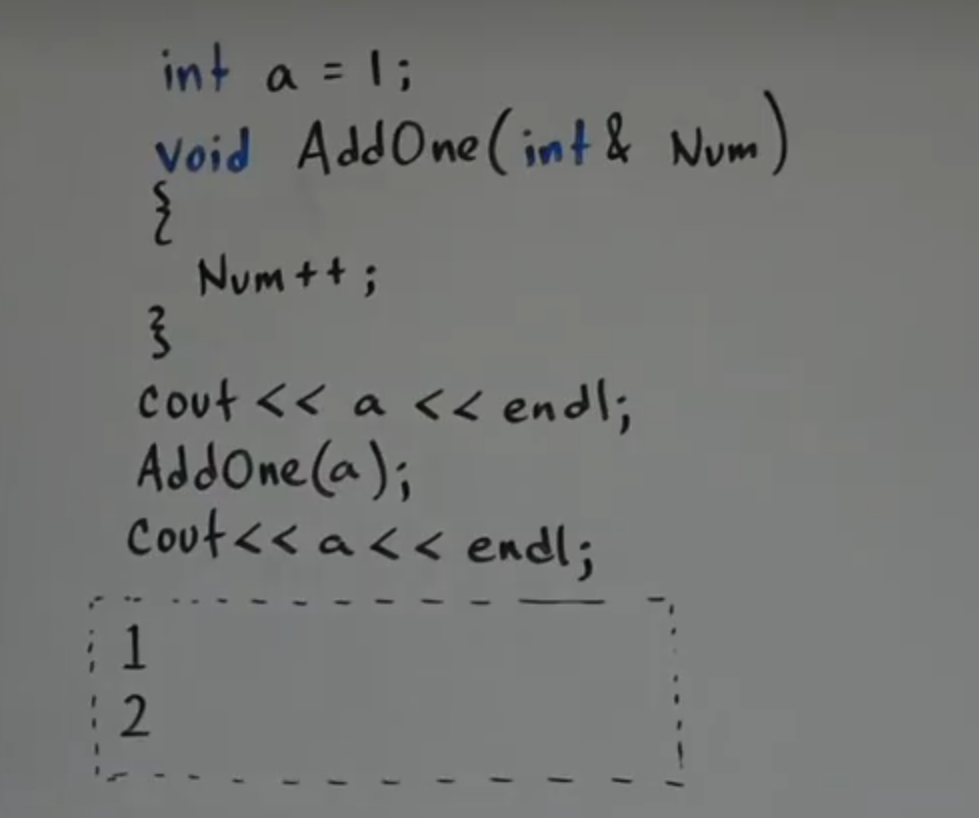 int a = 1;
void AddOne(int& Num)
{
Num++;
}
cout << a << endl;
AddOne(a);
cout << a << endl;
1
2